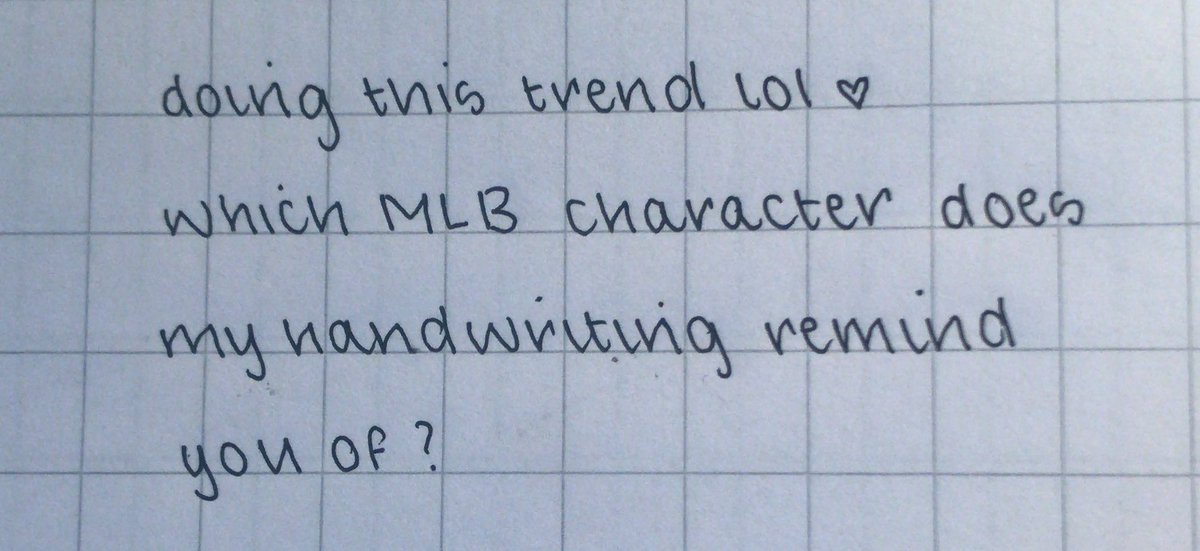 doing this trend lol ♡
which MLB character does
my handwriting remind
you of?